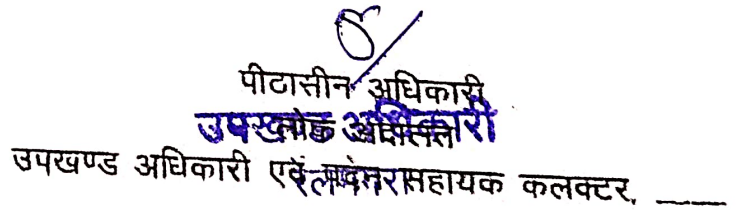 पीठासीन अधिकारी
उपखण्ड अधिकारी
लोक अदालत
उपखण्ड अधिकारी एवं पदेन सहायक कलक्टर,